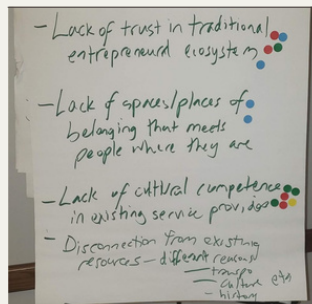 - Lack of trust in traditional
entrepreneurd ecosystem
- Lack of spaces/places of
belonging that meets
people where they are
- Lack of cultural competence
in existing service providers
- Disconnection from existing
resources - different reasons
- transpo
- culture etc
- history